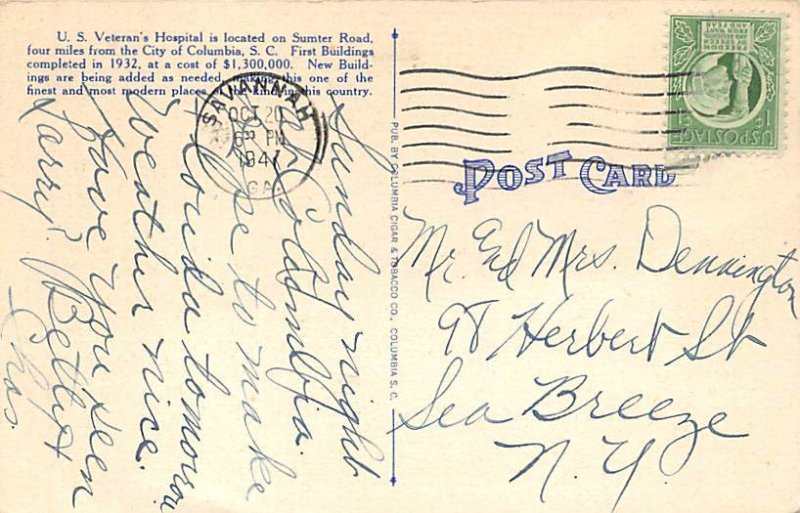 U. S. Veteran's Hospital is located on Sumter Road,
four miles from the City of Columbia, S. C. First Buildings
completed in 1932, at a cost of $1,300,000. New Build-
ings are being added as needed, making this one of the
finest and most modern places of the kind in this country.
SAVANNAH
OCT 20
6 PM
1947
GA.
FREEDOM
OF SPEECH
AND RELIGION
FROM WANT
AND FEAR
1¢
US POSTAGE
POST CARD
Sunday night
Columbia.
to make
tomorrow
Weather nice.
Have you seen
Larry? Betty &
Chas.
PUB. BY COLUMBIA CIGAR & TOBACCO CO., COLUMBIA S. C.
Mr. And Mrs. Dennington
98 Herbert St
Sea Breeze
N.Y.